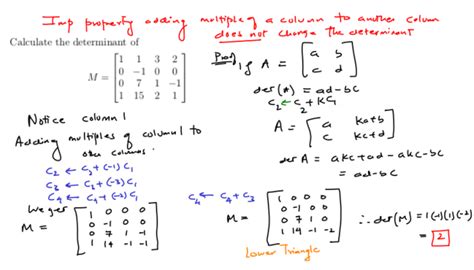 Imp property adding multiple of a column to another column
does not change the determinant
Calculate the determinant of
M = [1 1 3 2
0 -1 0 0
0 7 1 -1
1 15 2 1]
Proof) If A = [a b
c d]
det(A) = ad-bc
C2 ← C2 + KC1
A = [a ka+b
c kc+d]
det A = akc+ad-akc-bc
= ad-bc
Notice column 1
Adding multiples of column 1 to
other columns.
C2 ← C2 + (-1) C1
C3 ← C3 + (-3) C1
C4 ← C4 + (-2) C1
We get
M = [1 0 0 0
0 -1 0 0
0 7 1 -1
1 14 -1 -1]
C4 ← C4 + C3
M = [1 0 0 0
0 -1 0 0
0 7 1 0
1 14 -1 -2]
Lower Triangle
∴ det(M) = 1(-1)(1)(-2)
= 2